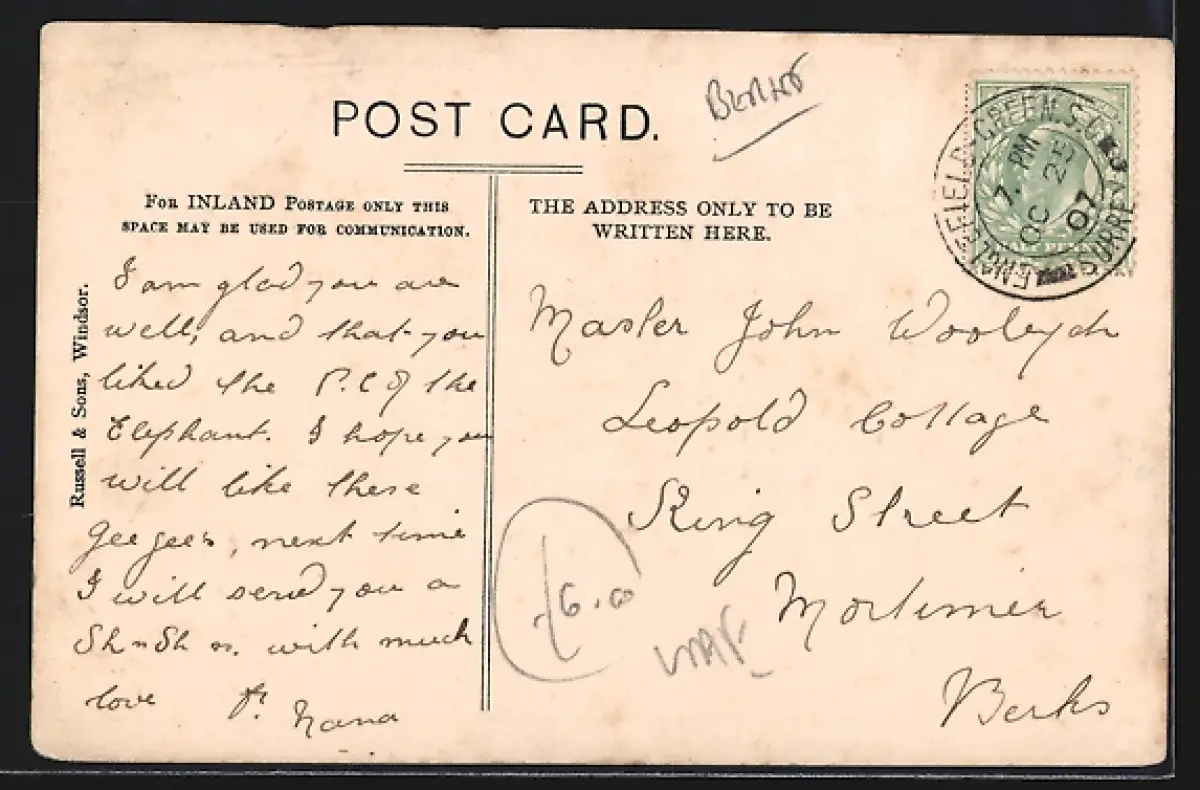 POST CARD.
FOR INLAND POSTAGE ONLY THIS
SPACE MAY BE USED FOR COMMUNICATION.
THE ADDRESS ONLY TO BE
WRITTEN HERE.
Russell & Sons, Windsor.
I am glad you are
well, and that you
liked the P.C of the
Elephant. I hope you
will like these
gee gee's, next time
I will send you a
Sh n Sh n. with much
love fr. Nana
Master John
Leopold Cottage
King Street
Mortimer
Berks
ENGLEFIELD GREEN S.O.
7. PM
OC 25
07
SURREY
6.00